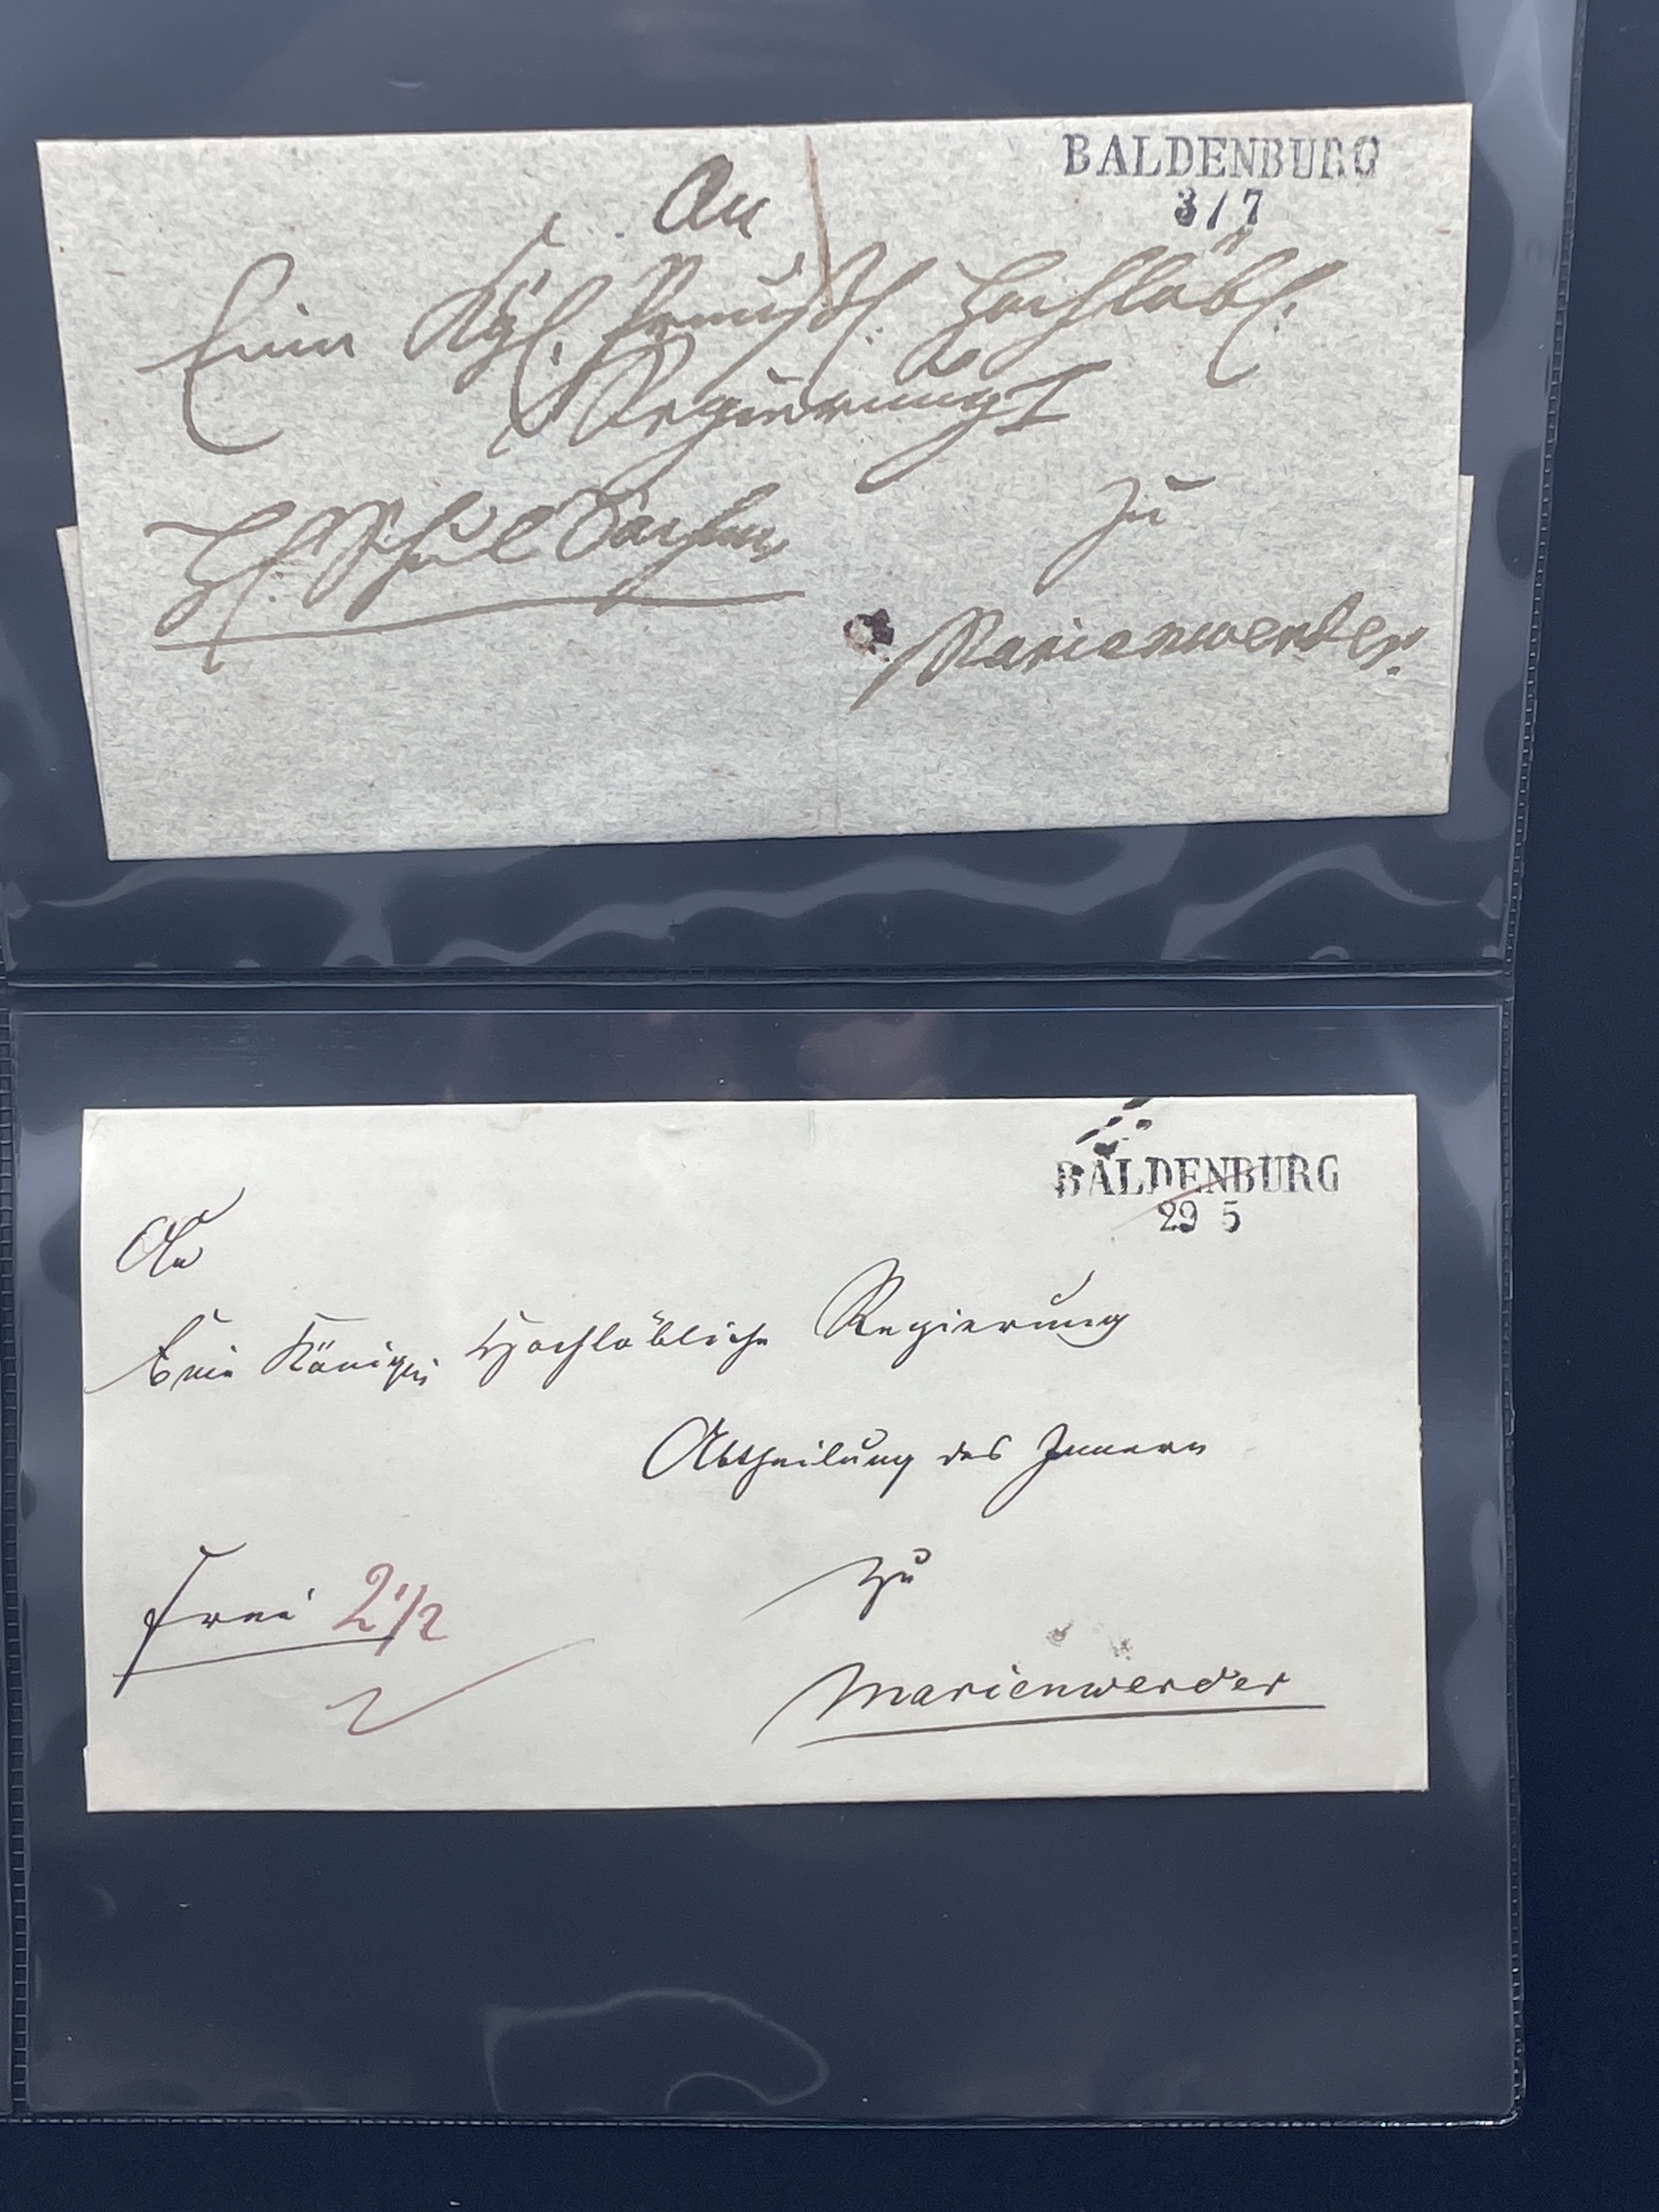 BALDENBURG
3/7
An
Eine Kgl. Preußl. Hochlöbl.
Regierung I
zu
Schul Sachen
Marienwerder.
BALDENBURG
29 5
An
Eine Königl. Hochlöbliche Regierung
Abtheilung des Innern
zu
frei 2 1/2
Marienwerder